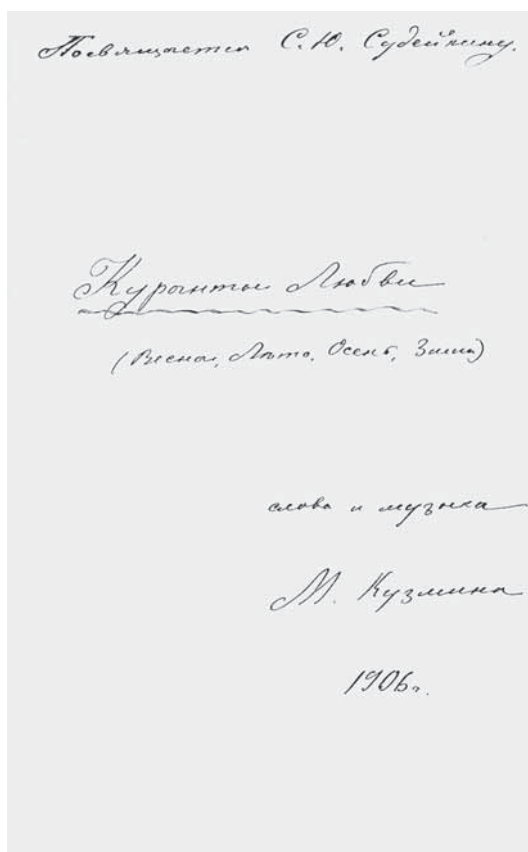 Посвящается С. Ю. Судейкину.
Куранты Любви
(Весна, Лѣто, Осень, Зима)
слова и музыка
М. Кузмина
1906 г.